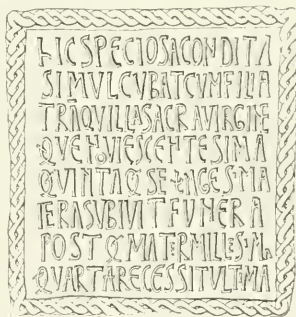 HIC SPECIOSA CONDITA
SIMUL CUBAT CUM FILIA
TRĀQUILLA SACRA VIRGINE
QUE NOVIES CENTESIMA
QUINTA Q SEXAGESIMA
ERA SUBIVIT FUNERA
POST Q MATER MILLESIMA
QUARTA RECESSIT ULTIMA